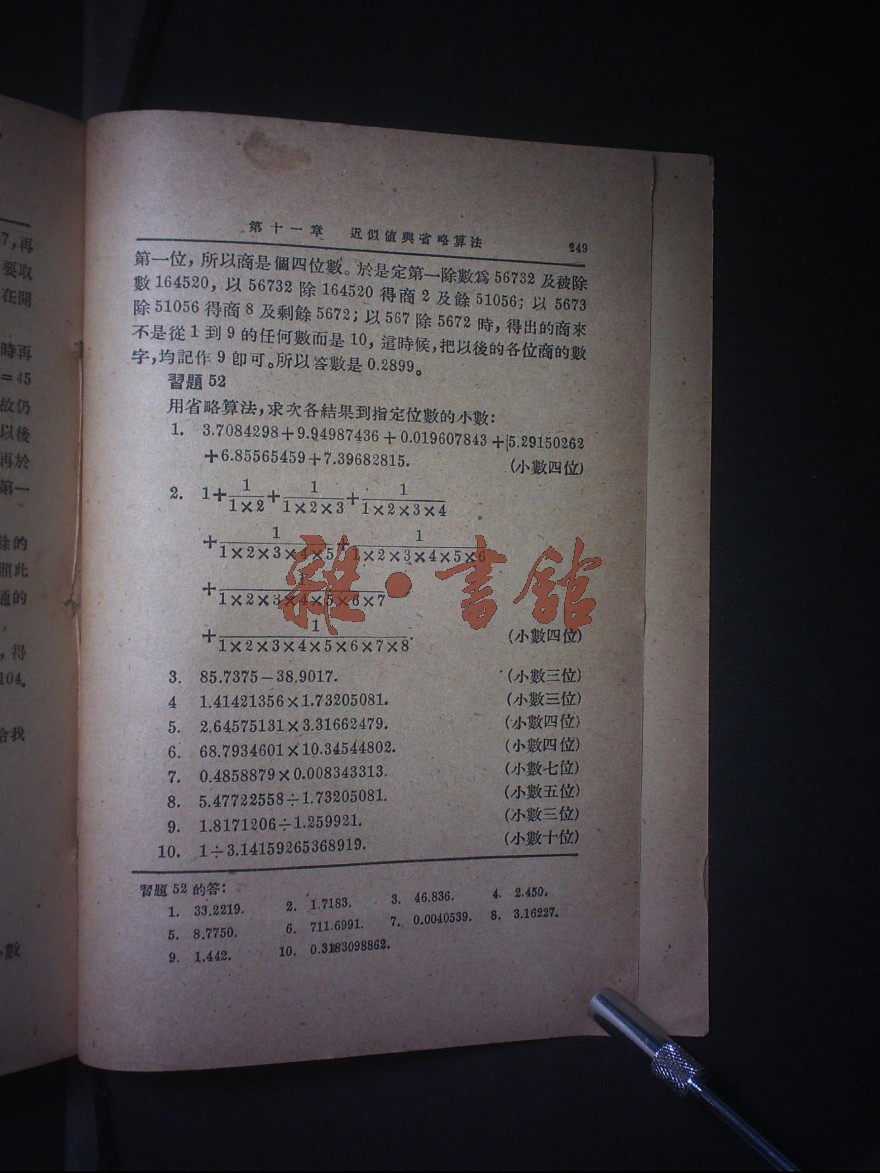 7,再
要取
在開
時再
=45
故仍
以後
再於
第一
餘的
照此
通的
,得
104.
給我
小數
第十一章 近似値與省略算法 249
第一位，所以商是個四位數。於是定第一除數爲 56732 及被除
數 164520，以 56732 除 164520 得商 2 及餘 51056；以 5673
除 51056 得商 8 及剩餘 5672；以 567 除 5672 時，得出的商來
不是從 1 到 9 的任何數而是 10，這時候，把以後的各位商的數
字，均記作 9 卽可。所以答數是 0.2899。
習題 52
用省略算法，求次各結果到指定位數的小數：
1. 3.7084298+9.94987436+0.019607843+5.29150262
+6.85565459+7.39682815. (小數四位)
2. 1+1/1×2+1/1×2×3+1/1×2×3×4
+1/1×2×3×4×5+1/1×2×3×4×5×6
+1/1×2×3×4×5×6×7
+1/1×2×3×4×5×6×7×8. (小數四位)
雜·書館
3. 85.7375-38.9017. (小數三位)
4 1.41421356×1.73205081. (小數三位)
5. 2.64575131×3.31662479. (小數四位)
6. 68.7934601×10.34544802. (小數四位)
7. 0.4858879×0.008343313. (小數七位)
8. 5.47722558÷1.73205081. (小數五位)
9. 1.8171206÷1.259921. (小數三位)
10. 1÷3.14159265368919. (小數十位)
習題 52 的答：
1. 33.2219. 2. 1.7183. 3. 46.836. 4. 2.450.
5. 8.7750. 6. 711.6991. 7. 0.0040539. 8. 3.16227.
9. 1.442. 10. 0.3183098862.